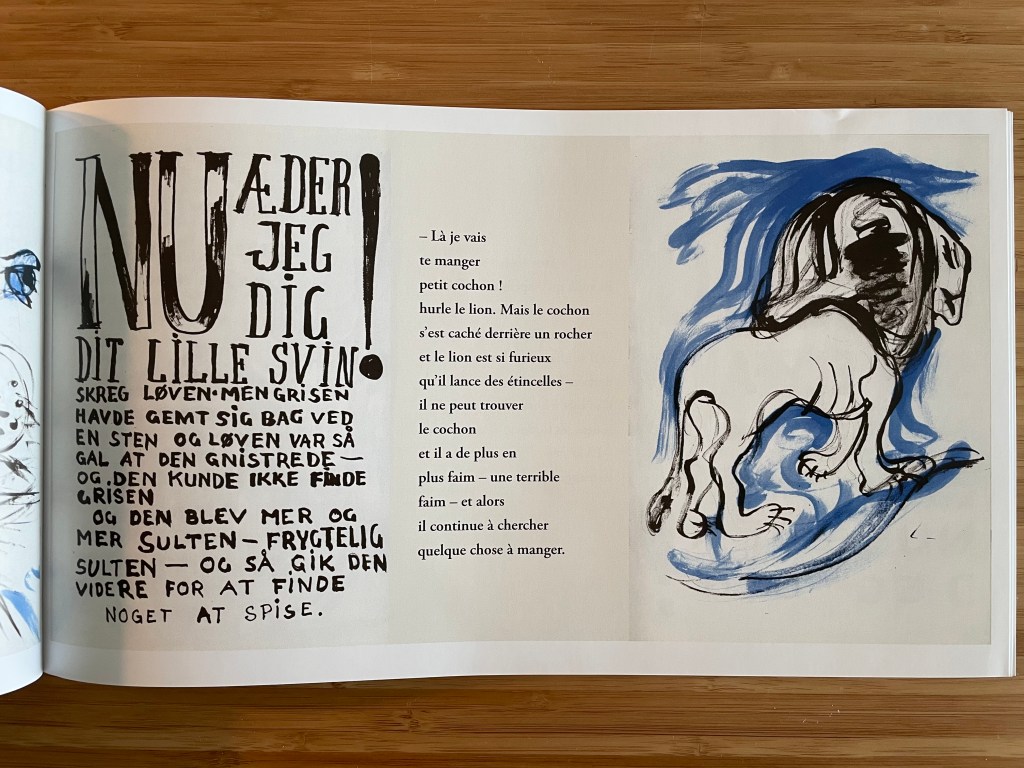 NU ÆDER
JEG
DIG
DIT LILLE SVIN!
SKREG LØVEN·MEN GRISEN
HAVDE GEMT SIG BAG VED
EN STEN OG LØVEN VAR SÅ
GAL AT DEN GNISTREDE —
OG.DEN KUNDE IKKE FINDE
GRISEN
OG DEN BLEV MER OG
MER SULTEN — FRYGTELIG
SULTEN — OG SÅ GIK DEN
VIDERE FOR AT FINDE
NOGET AT SPISE.
– Là je vais
te manger
petit cochon !
hurle le lion. Mais le cochon
s'est caché derrière un rocher
et le lion est si furieux
qu'il lance des étincelles –
il ne peut trouver
le cochon
et il a de plus en
plus faim – une terrible
faim – et alors
il continue à chercher
quelque chose à manger.